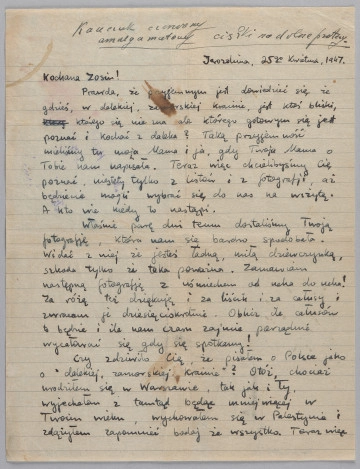 Kauczuk czerwony
amalgamatowy
ciążki na dolne protezy
Jerozolima, 25go Kwietnia, 1947.
Kochana Zosiu!
Prawda, że przyjemnym jest dowiedzieć się że
gdzieś, w dalekiej, zamorskiej krainie, jest ktoś bliski,
którego się nie zna ale którego gotowym się jest
poznać i kochać z daleka? Taką przyjemność
mieliśmy tu, moja Mama i ja, gdy Twoja Mama o
Tobie nam napisała. Teraz więc chcielibyśmy Cię
poznać, niestety tylko z listów i z fotografji, aż
będziecie mogli wybrać się do nas na wizytę.
A kto wie kiedy to nastąpi.
Właśnie parę dni temu dostaliśmy Twoją
fotografję, która nam się bardzo spodobała.
Widać z niej że jesteś ładną, miłą dziewczynką,
szkoda tylko że taka poważna. Zamawiam
następną fotografję z uśmiechem od ucha do ucha!
Za różę też dziękuję i za liścik i za całusy i
zwracam ji dziesięciokrotnie. Oblicz ile całusów
to będzie i ile nam czasu zajmie porządne
wycałowanie się gdy się spotkamy!
Czy zdziwiło Cię, że pisałam o Polsce jako
o "dalekiej, zamorskiej krainie"? Otóż, chociaż
urodziłem się w Warszawie, tak jak i Ty,
wyjechałem z tamtąd będąc mniejwięcej w
Twoim wieku, wychowałem się w Palestynie i
zdążyłem zapomnieć bodaj że wszystko. Teraz więc